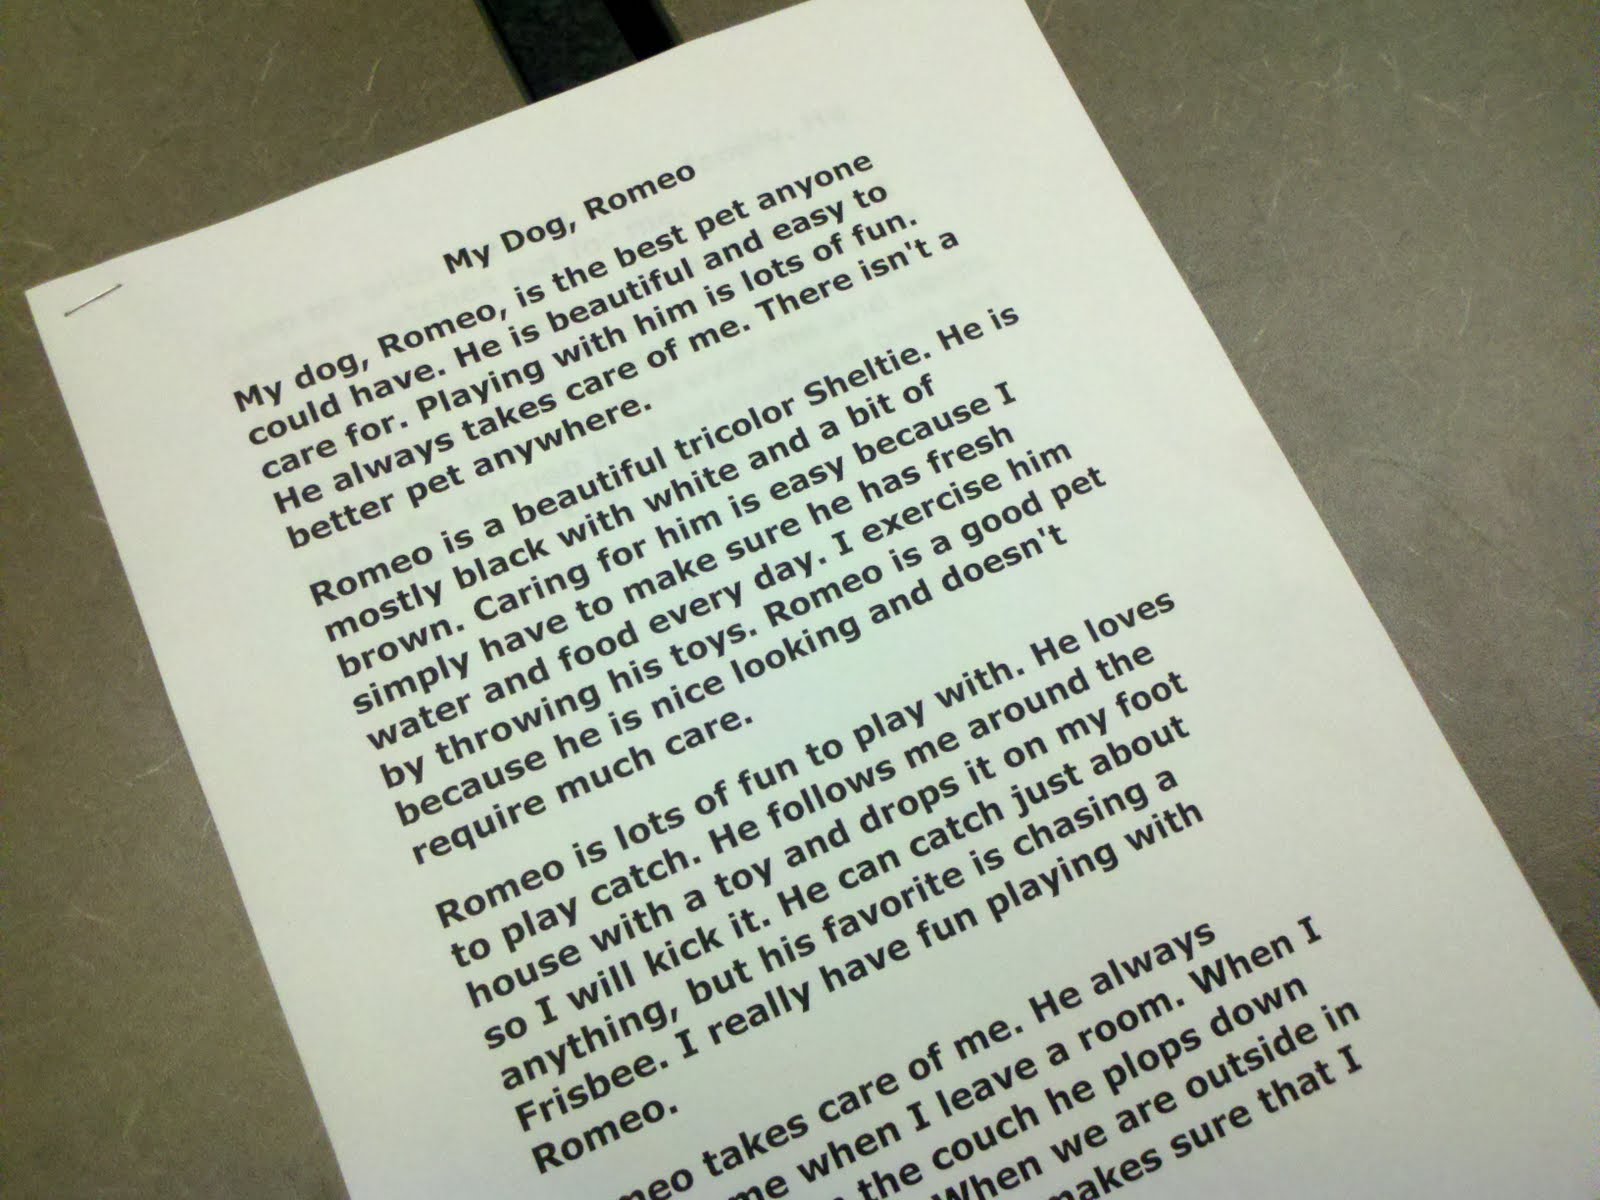 My Dog, Romeo
My dog, Romeo, is the best pet anyone
could have. He is beautiful and easy to
care for. Playing with him is lots of fun.
He always takes care of me. There isn't a
better pet anywhere.
Romeo is a beautiful tricolor Sheltie. He is
mostly black with white and a bit of
brown. Caring for him is easy because I
simply have to make sure he has fresh
water and food every day. I exercise him
by throwing his toys. Romeo is a good pet
because he is nice looking and doesn't
require much care.
Romeo is lots of fun to play with. He loves
to play catch. He follows me around the
house with a toy and drops it on my foot
so I will kick it. He can catch just about
anything, but his favorite is chasing a
Frisbee. I really have fun playing with
Romeo.
takes care of me. He always
me when I leave a room. When I
the couch he plops down
When we are outside in
makes sure that I